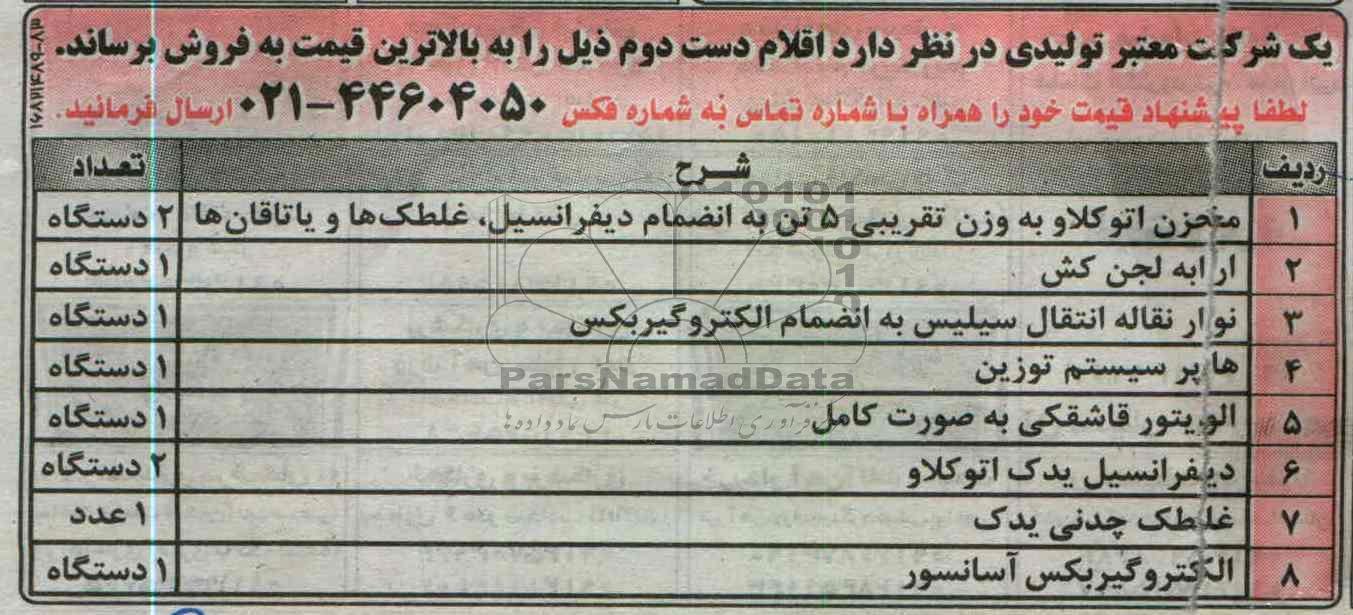 یک شرکت معتبر تولیدی در نظر دارد اقلام دست دوم ذیل را به بالاترین قیمت به فروش برساند.
لطفا پیشنهاد قیمت خود را همراه با شماره تماس به شماره فکس ۴۴۶۰۴۰۵۰-۰۲۱ ارسال فرمائید.
ردیف شرح تعداد
۱ مخزن اتوکلاو به وزن تقریبی ۵ تن به انضمام دیفرانسیل، غلطک‌ها و یاتاقان‌ها ۲ دستگاه
۲ ارابه لجن کش ۱ دستگاه
۳ نوار نقاله انتقال سیلیس به انضمام الکتروگیربکس ۱ دستگاه
۴ هاپر سیستم توزین ۱ دستگاه
۵ الویتور قاشقکی به صورت کامل ۱ دستگاه
۶ دیفرانسیل یدک اتوکلاو ۲ دستگاه
۷ غلطک چدنی یدک ۱ عدد
۸ الکتروگیربکس آسانسور ۱ دستگاه
ParsNamadData
فرآوری اطلاعات پارس نماد داده ها